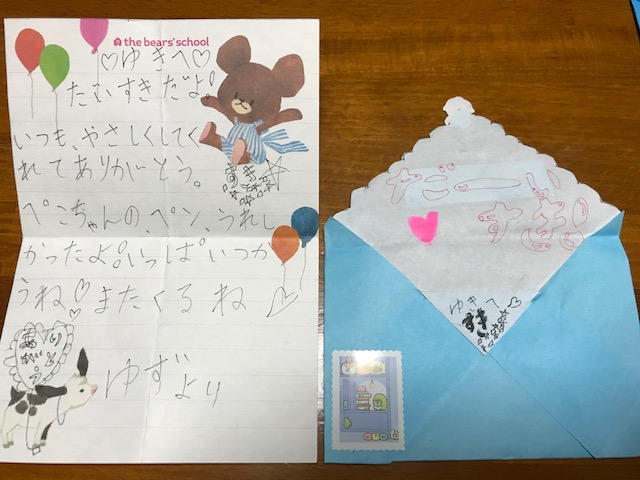 the bears' school
♡ゆきへ♡
だいすきだよ!
いつも、やさしくしてく
れてありがとう。
すき
ぺこちゃんの、ペン、うれし
かったよ!いっぱいつか
うね♡またくるね♡
ありがとう
ゆずより
だーい
すき
ゆきへ♡
すき